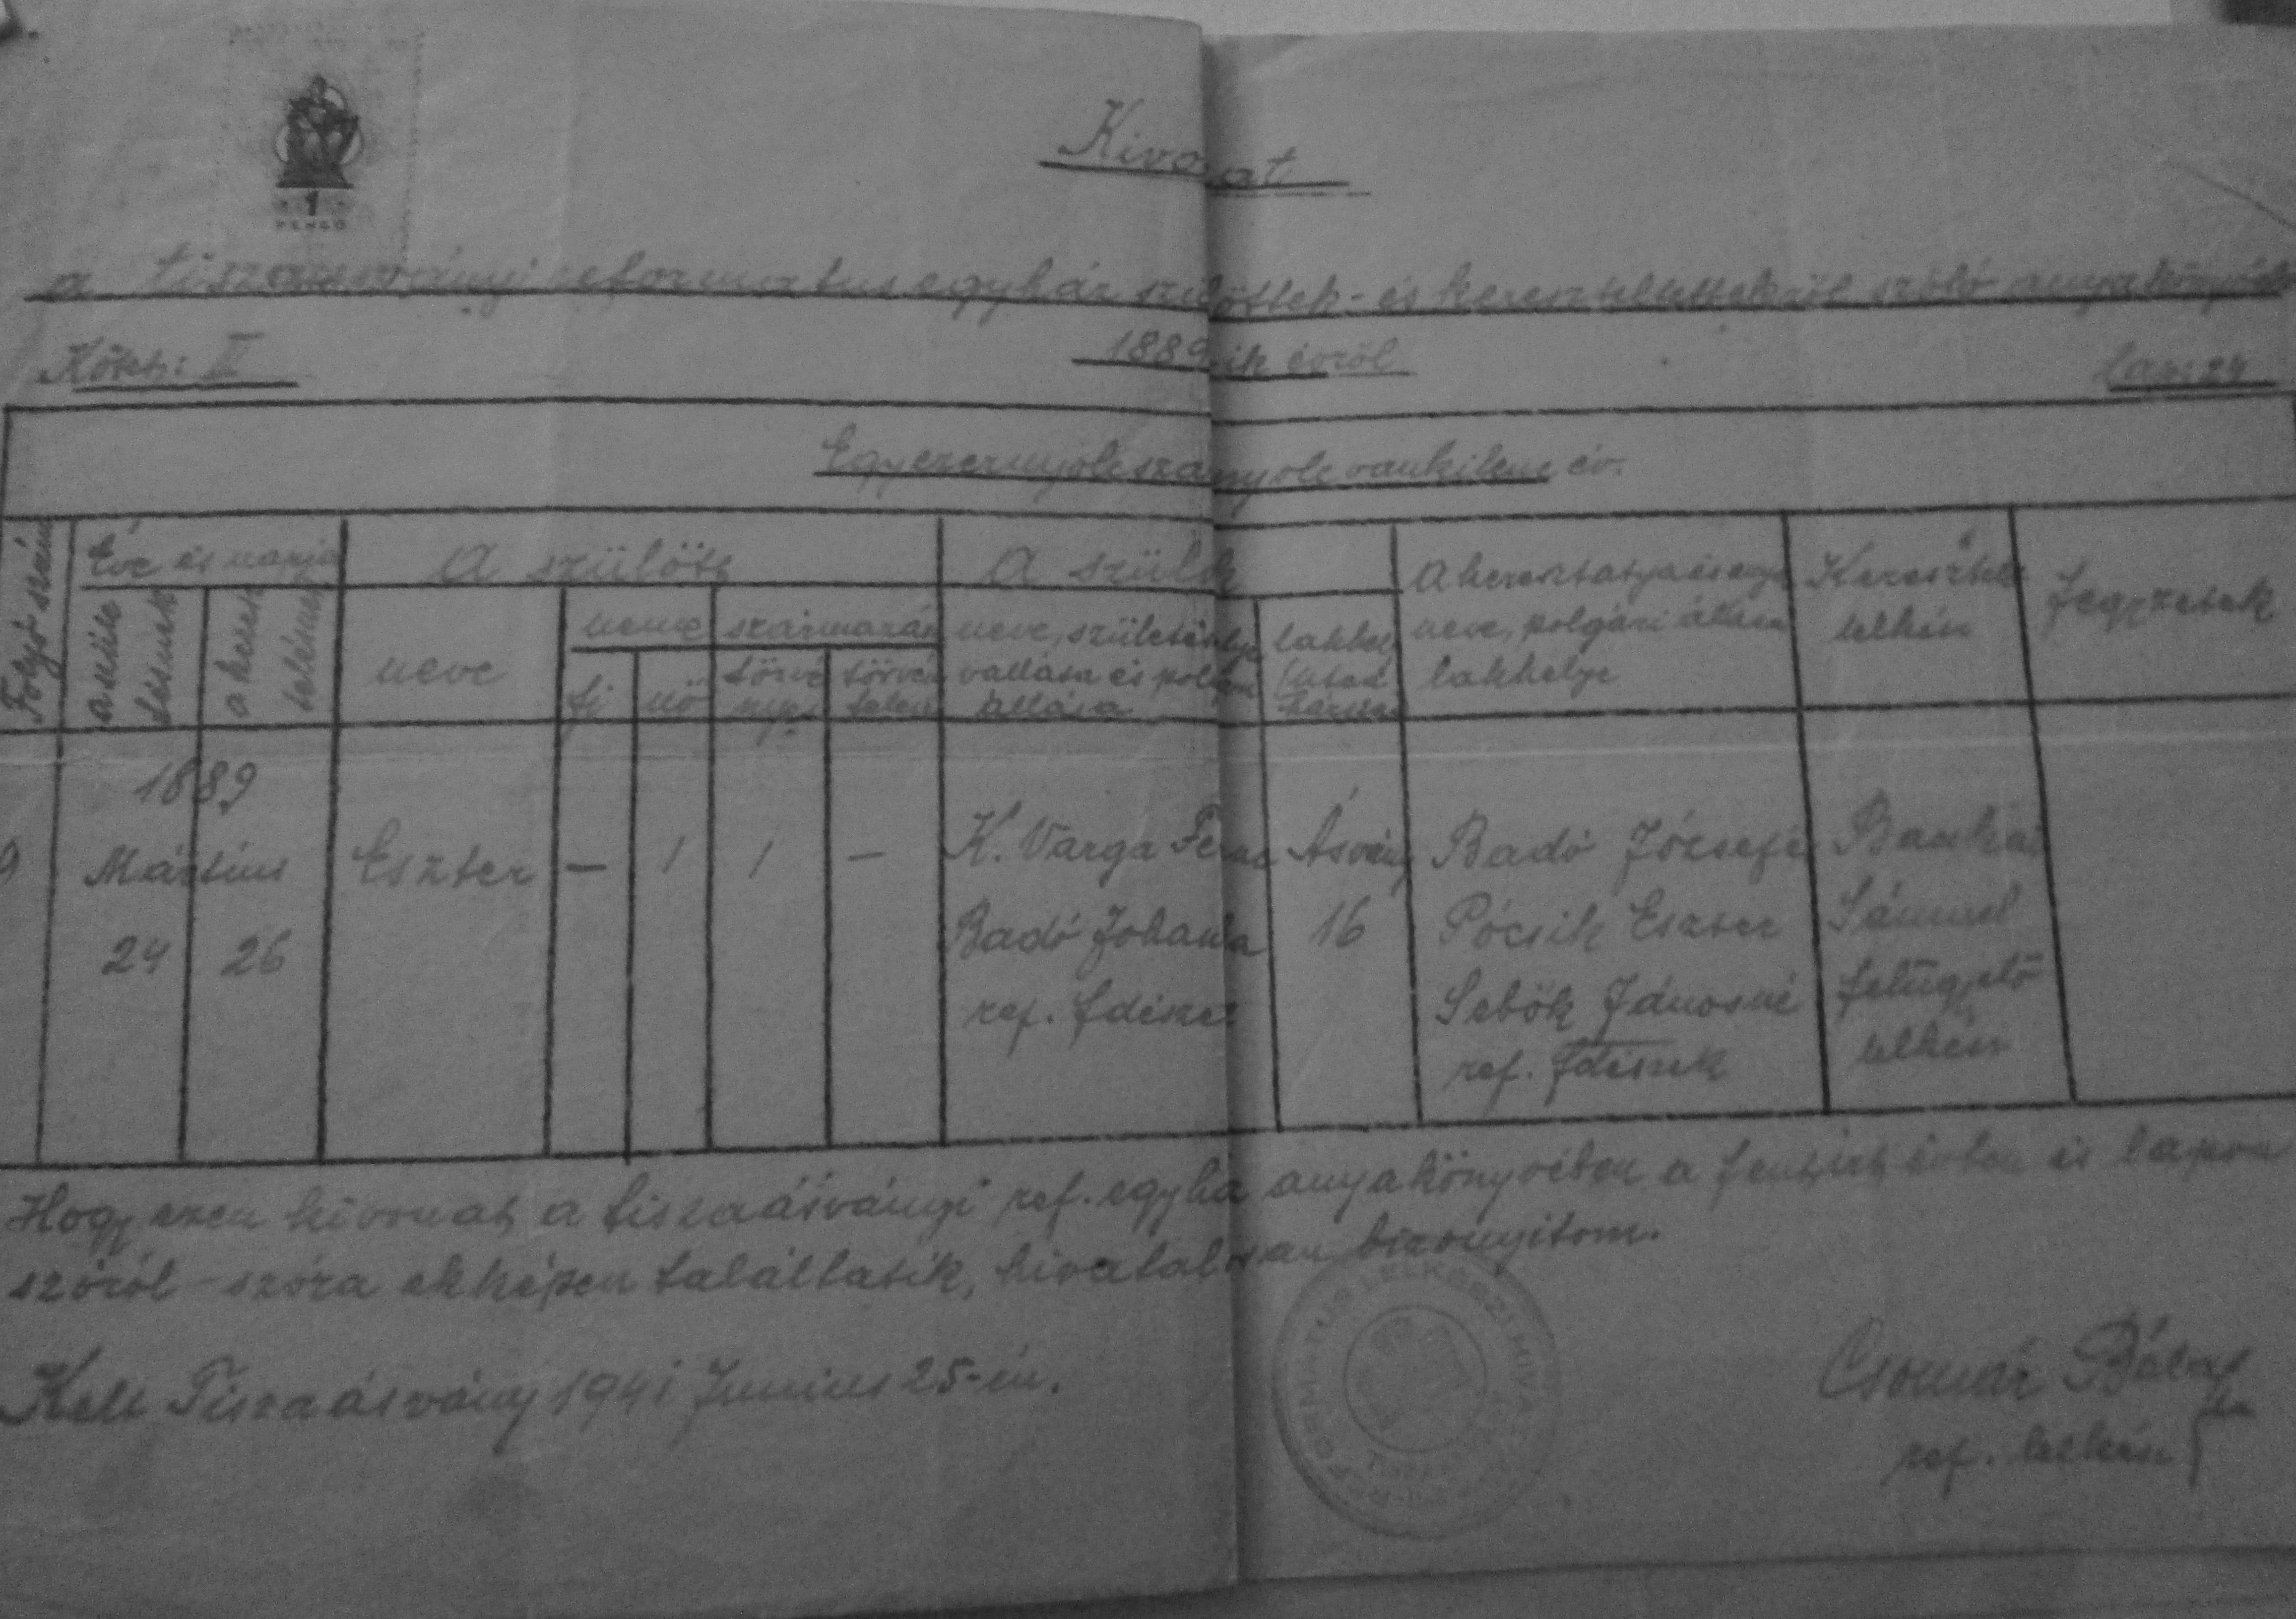 1
PENGŐ
Kivonat
a tiszaásványi református egyház szülöttek- és kereszteltekről szóló anyakönyvéből
Kötet: II
1889-ik évről
Lap: 24
Egyezernyolcszáznyolcvankilenc év.
Folyó szám
Éve és napja
a szüle tésnek
a keresz telésnek
A szülött
neve
neme
fi
nő
származás
törvé nyes
törvény telen
A szülők
neve, születéshelye
vallása és polgári
állása
lakhely
házszám
A keresztatya és anya
neve, polgári állása
lakhelye
Keresztelő
lelkész
Jegyzetek
9
1889
Mártius
24 26
Eszter
— 1 1 —
K. Varga Ferenc
Badó Johanna
ref. fdész
Ásvány
16
Badó Józsefé
Pócsik Eszter
Sebők Jánosné
ref. fdészek
Sámuel
felügyelő
lelkész
Hogy ezen kivonat a tiszaásványi ref. egyház anyakönyvében a fentirt évben és lapon
szóról-szóra ekképen találtatik, hivatalosan bizonyitom.
Kelt Tiszaásvány 1941 Junius 25-én.
REFORMÁTUS LELKÉSZI HIVATAL
Csomár Bálint
ref. lelkész